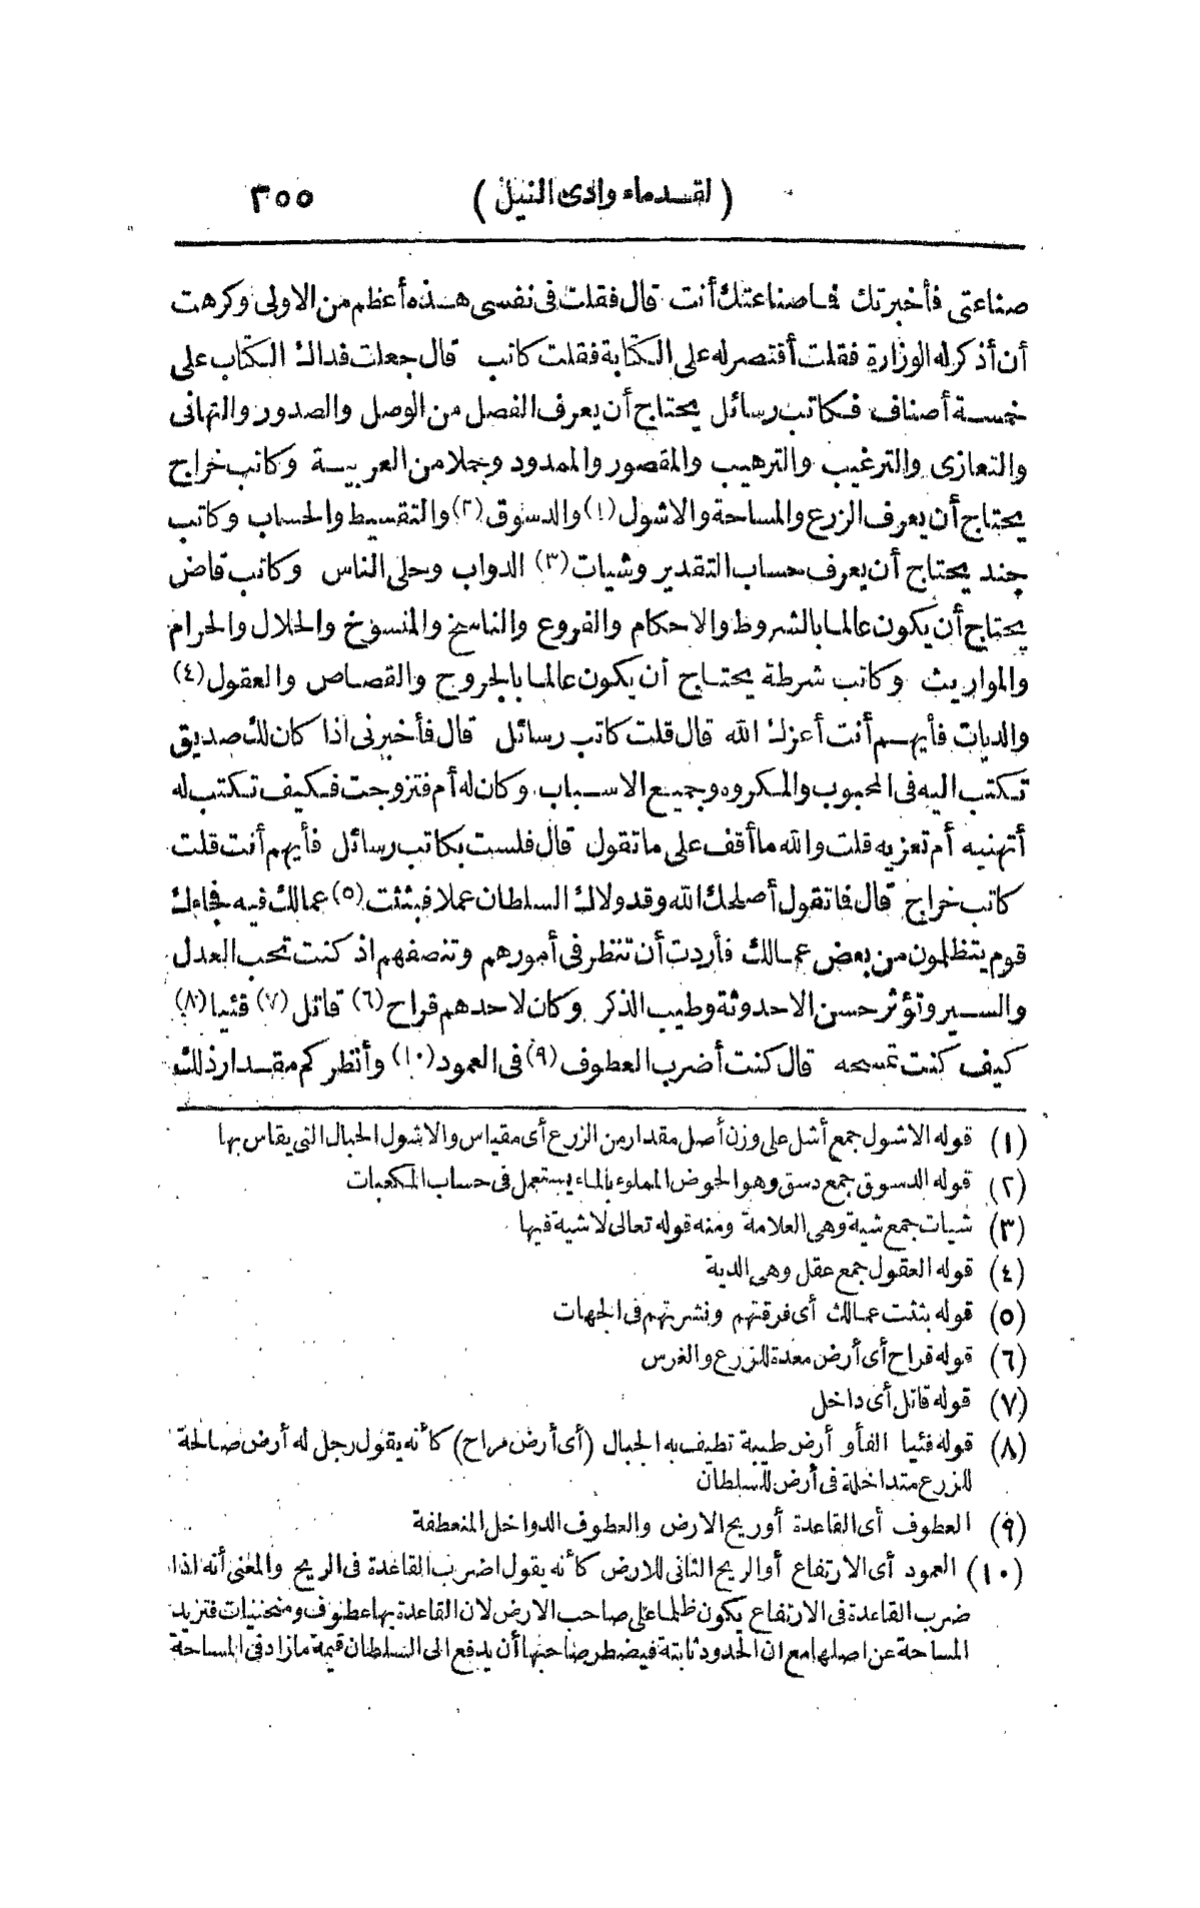 (لقدماء وادى النيل) ٣٥٥
صناعتى فأخبرتك فما صناعتك أنت قال فقلت فى نفسى هذه أعظم من الاولى وكرهت
أن أذكر له الوزارة فقلت أقتصر له على الكتابة فقلت كاتب قال جعلت فداك الكتاب على
خمسة أصناف فكاتب رسائل يحتاج أن يعرف الفصل من الوصل والصدور والتهانى
والتعازى والترغيب والترهيب والمقصور والممدود وجملا من العربية وكاتب خراج
يحتاج أن يعرف الزرع والمساحة والاشول (١) والدسوق (٢) والتقسيط والحساب وكاتب
جند يحتاج أن يعرف حساب التقدير وشيات (٣) الدواب وحلى الناس وكاتب قاض
يحتاج أن يكون عالما بالشروط والاحكام والفروع والناسخ والمنسوخ والحلال والحرام
والمواريث وكاتب شرطة يحتاج أن يكون عالما بالجروح والقصاص والعقول (٤)
والديات فأيهم أنت أعزك الله قال قلت كاتب رسائل قال فأخبرنى اذا كان لك صديق
تكتب اليه فى المحبوب والمكروه وجميع الاسباب وكان له أم فتزوجت فكيف تكتب له
أتهنيه أم تعزيه قلت والله ما أقف على ما تقول قال فلست بكاتب رسائل فأيهم أنت قلت
كاتب خراج قال فما تقول أصلحك الله وقد ولاك السلطان عملا فبثثت (٥) عمالك فيه فجاءك
قوم يتظلمون من بعض عمالك فأردت أن تنظر فى أمورهم وتنصفهم اذ كنت تحب العدل
والسير وتؤثر حسن الاحدوثة وطيب الذكر وكان لاحدهم قراح (٦) قاتل (٧) قثيا (٨)
كيف كنت تمسحه قال كنت أضرب العطوف (٩) فى العمود (١٠) وأنظر كم مقدار ذلك
(١) قوله الاشول جمع أشل على وزن أصل مقدار من الزرع أى مقياس والاشول الحبال التى يقاس بها
(٢) قوله الدسوق جمع دسق وهو الحوض المملوء بالماء يستعمل فى حساب المكعبات
(٣) شيات جمع شية وهى العلامة ومنه قوله تعالى لاشية فيها
(٤) قوله العقول جمع عقل وهى الدية
(٥) قوله بثثت عمالك أى فرقتهم ونشرتهم فى الجهات
(٦) قوله قراح أى أرض معدة للزرع والغرس
(٧) قوله قاتل أى داخل
(٨) قوله فئيا الفأو أرض طيبة تطيف به الجبال (أى أرض مراح) كأنه يقول رجل له أرض صالحة
للزرع متداخلة فى أرض للسلطان
(٩) العطوف أى القاعدة أو ريح الارض والعطوف الدواخل المنعطفة
(١٠) العمود أى الارتفاع أو الريح الثانى للارض كأنه يقول اضرب القاعدة فى الريح والمعنى أنه اذا
ضرب القاعدة فى الارتفاع يكون ظلما على صاحب الارض لان القاعدة بها عطوف ومنحنيات فتزيد
المساحة عن اصلها مع ان الحدود ثابتة فيضطر صاحبها أن يدفع الى السلطان قيمة مازاد فى المساحة